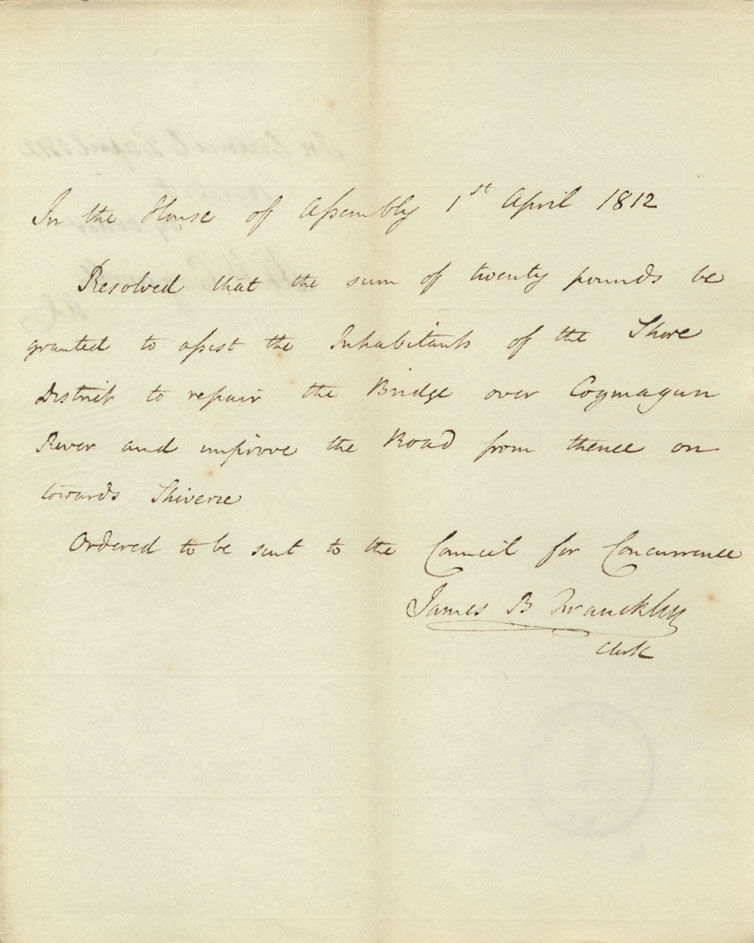 In the House of Assembly 1st April 1812
Resolved that the sum of twenty pounds be
granted to assist the Inhabitants of the Shore
District to repair the Bridge over Cogmagun
River and improve the Road from thence on
towards Shiverie
Ordered to be sent to the Council for Concurrence
James B Francklin
Clerk